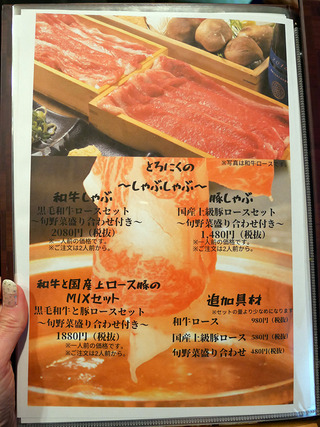 ※写真は和牛ロースです。
とろにくの
〜しゃぶしゃぶ〜
和牛しゃぶ
黒毛和牛ロースセット
〜旬野菜盛り合わせ付き〜
2080円（税抜）
※一人前の価格です。
※ご注文は2人前から。
豚しゃぶ
国産上級豚ロースセット
〜旬野菜盛り合わせ付き〜
1,480円（税抜）
※一人前の価格です。
※ご注文は2人前から。
和牛と国産上ロース豚の
MIXセット
黒毛和牛と豚ロースセット
〜旬野菜盛り合わせ付き〜
1880円（税抜）
※一人前の価格です。
※ご注文は2人前から。
追加具材
※セットの量より少なめになります
和牛ロース 980円（税抜）
国産上級豚ロース 580円（税抜）
旬野菜盛り合わせ 480円（税抜）